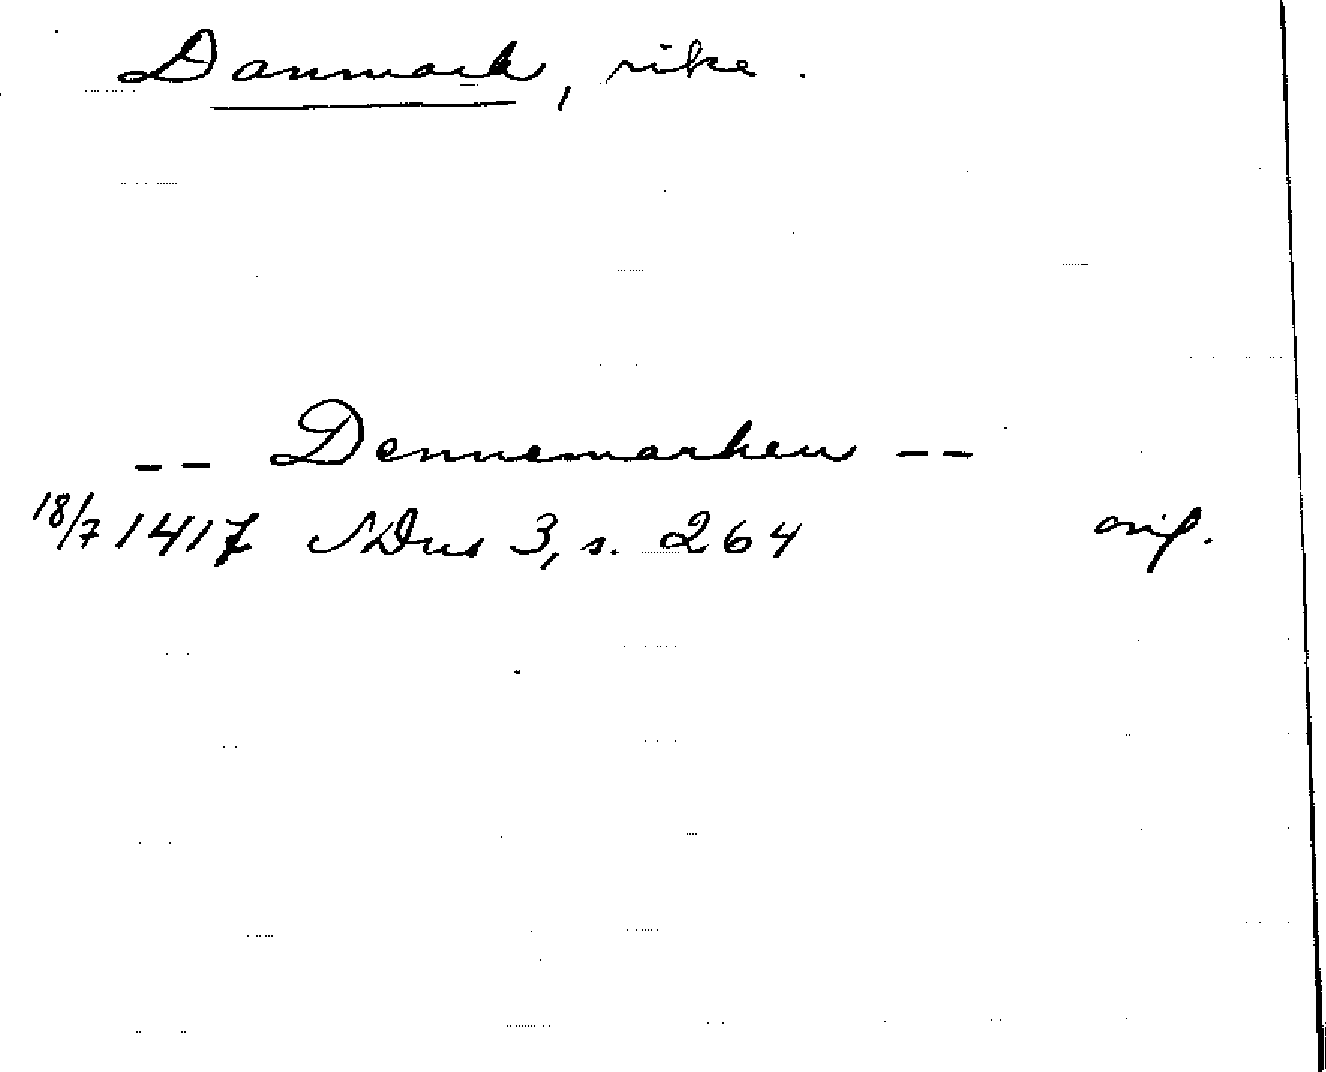 Danmark, rike.
-- Dennemarken --
18/7 1417 SDns 3, s. 264 orig.